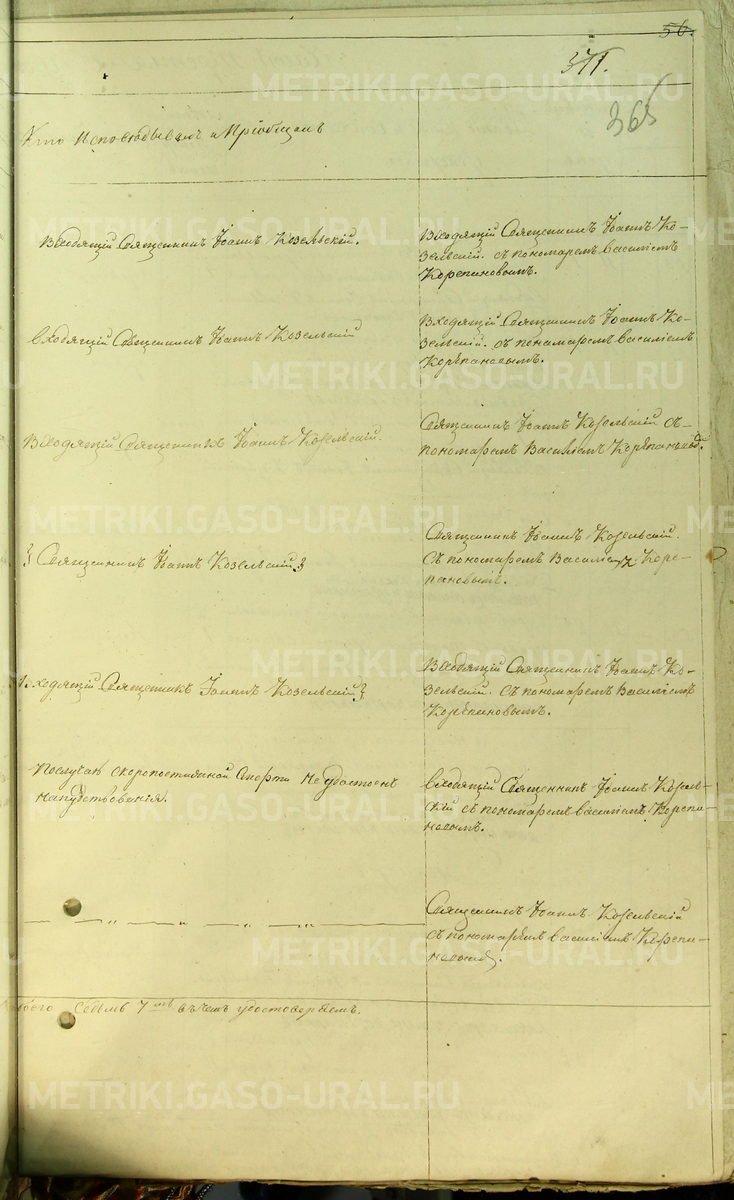 56.
371.
365
Кто Исповѣдывалъ и Пріобщалъ
Входящій Священникъ Іоаннъ Козельскій.
Входящій Священникъ Іоаннъ Ко-
зельскій. съ пономаремъ Василіемъ
Корепановымъ.
Входящій Священникъ Іоаннъ Козельскій
Входящій Священникъ Іоаннъ Ко-
зельскій. съ пономаремъ Василіемъ
Корѣпановымъ.
Входящій Священникъ Іоаннъ Козельскій.
Священникъ Іоаннъ Козельскій съ-
пономаремъ Василіемъ Корѣпановы.
Священникъ Іоаннъ Козельскій.
Священникъ Іоаннъ Козельскій.
Съ пономаремъ Василіемъ Коре-
пановымъ.
Входящій Священникъ Іоаннъ Козельскій
Входящій Священникъ Іоаннъ Ко-
зельскій. съ пономаремъ Василіемъ
Корѣпановымъ.
Послучаю скоропостижной Смерти не удостоенъ
напутствованія.
Входящій Священникъ Іоаннъ Козель-
кій съ пономаремъ Василіемъ Корепа-
новымъ.
— „ — „ — „ — „
Священникъ Іоаннъ Козельскій
съ пономарѣмъ Василіемъ Корепа-
Седьмь 7 въ чемъ удостоверяемъ.
METRIKI.GASO-URAL.RU